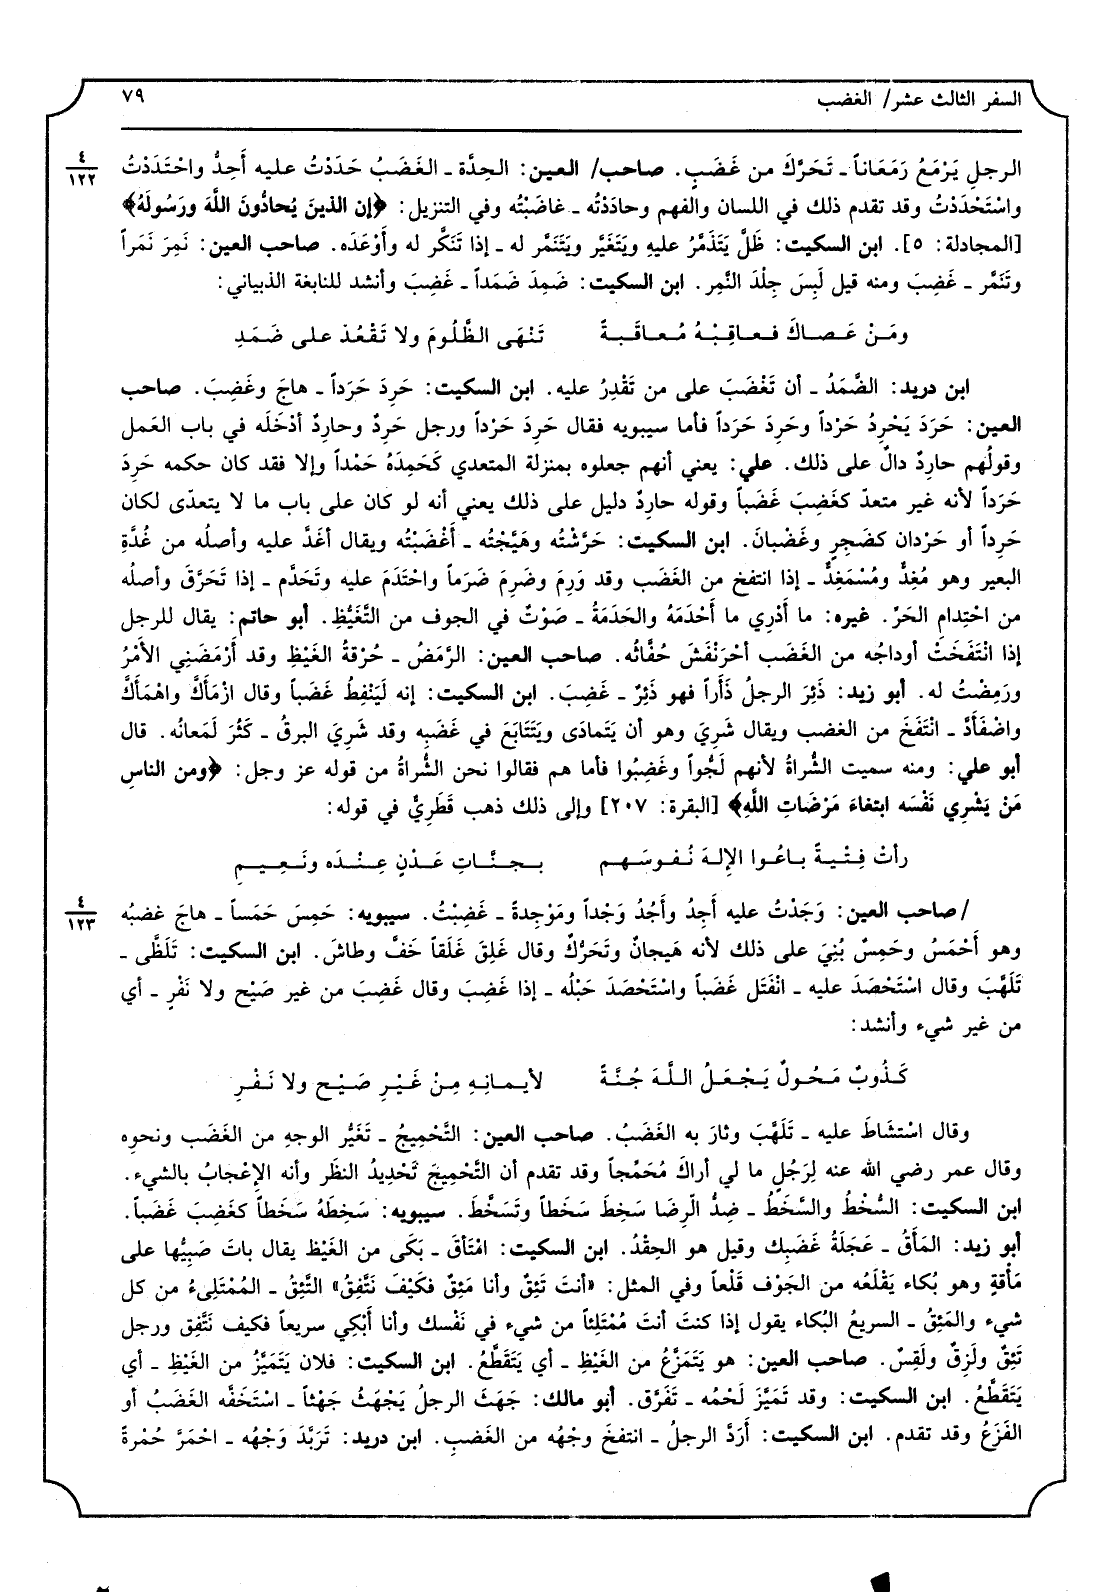 السفر الثالث عشر/ الغضب ٧٩
الرجلِ يَرْمَعُ رَمَعَاناً ـ تَحَرَّكَ من غَضَبٍ. صاحب/ العين: الحِدَّة ـ الغَضَبُ حَدَدْتُ عليه أَحِدُّ واحْتَدَدْتُ ٤/١٢٢
واسْتَحْدَدْتُ وقد تقدم ذلك في اللسان والفهم وحادَدْتُه ـ غاضَبْتُه وفي التنزيل: ﴿إن الذينَ يُحادُّونَ اللَّهَ ورَسُولَهُ﴾
[المجادلة: ٥]. ابن السكيت: ظَلَّ يَتَذَمَّرُ عليهِ ويَتَغَيَّر ويَتَنَمَّر له ـ إذا تَنَكَّر له وأَوْعَدَه. صاحب العين: نَمِرَ نَمَراً
وتَنَمَّر ـ غَضِبَ ومنه قيل لَبِسَ جِلْدَ النَّمِر. ابن السكيت: ضَمِدَ ضَمَداً ـ غَضِبَ وأنشد للنابغة الذبياني:
ومَنْ عَصاكَ فعاقِبْهُ مُعاقَبةً تَنْهَى الظَّلُومَ ولا تَقْعُدْ على ضَمَدِ
ابن دريد: الضَّمَدُ ـ أن تَغْضَبَ على من تَقْدِرُ عليه. ابن السكيت: حَرِدَ حَرَداً ـ هاجَ وغَضِبَ. صاحب
العين: حَرَدَ يَحْرِدُ حَرْداً وحَرِدَ حَرَداً فأما سيبويه فقال حَرِدَ حَرْداً ورجل حَرِدٌ وحارِدٌ أدْخَلَه في باب العَمل
وقولُهم حارِدٌ دالّ على ذلك. علي: يعني أنهم جعلوه بمنزلة المتعدي كَحَمِدَهُ حَمْداً وإلا فقد كان حكمه حَرِدَ
حَرَداً لأنه غير متعدّ كغَضِبَ غَضَباً وقوله حارِدٌ دليل على ذلك يعني أنه لو كان على باب ما لا يتعدّى لكان
حَرِداً أو حَرْدان كضَجِرٍ وغَضْبانَ. ابن السكيت: حَرَّشْتُه وهَيَّجْتُه ـ أَغْضَبْتُه ويقال أغَدَّ عليه وأصلُه من غُدَّةِ
البعير وهو مُغِدٌّ ومُسْمَغِدٌّ ـ إذا انتفخ من الغَضَب وقد وَرِمَ وضَرِمَ ضَرَماً واحْتَدَمَ عليه وتَحَدَّم ـ إذا تَحَرَّقَ وأصلُه
من احْتِدامِ الحَرّ. غيره: ما أَدْرِي ما أَحْدَمَهُ والحَدَمَةُ ـ صَوْتٌ في الجوف من التَّغَيُّظِ. أبو حاتم: يقال للرجل
إذا انْتَفَخَتْ أوداجُه من الغَضَب احْرَنْفَشَ حُفَّاثُه. صاحب العين: الرَّمَضُ ـ حُرْقةُ الغَيْظِ وقد أَرْمَضَنِي الأمْرُ
ورَمِضْتُ له. أبو زيد: ذَئِرَ الرجلُ ذَأَراً فهو ذَئِرٌ ـ غَضِبَ. ابن السكيت: إنه لَيَنْفِطُ غَضَباً وقال ازْمَأَكَّ واهْمَأَكَّ
واضْفَأَدَّ ـ انْتَفَخَ من الغضب ويقال شَرِيَ وهو أن يَتَمادَى ويَتَتَابَعَ في غَضَبِه وقد شَرِيَ البرقُ ـ كَثُرَ لَمَعانُه. قال
أبو علي: ومنه سميت الشُّراةُ لأنهم لَجُّواْ وغَضِبُوا فأما هم فقالوا نحن الشُّراةُ من قوله عز وجل: ﴿ومن الناسِ
مَنْ يَشْرِي نَفْسَه ابتغاءَ مَرْضَاتِ اللَّهِ﴾ [البقرة: ٢٠٧] وإلى ذلك ذهب قَطَرِيٌّ في قوله:
رأتْ فِتْيةً باعُوا الإلهَ نُفوسَهم بجنَّاتِ عَدْنٍ عِنْدَه ونَعِيمِ
/صاحب العين: وَجَدْتُ عليه أَجِدُ وأَجُدُ وَجْداً ومَوْجِدةً ـ غَضِبْتُ. سيبويه: حَمِسَ حَمَساً ـ هاجَ غضبُه ٤/١٢٣
وهو أَحْمَسُ وحَمِسٌ بُنِيَ على ذلك لأنه هَيجانٌ وتَحَرُّكٌ وقال غَلِقَ غَلَقاً خَفَّ وطاشَ. ابن السكيت: تَلَظَّى ـ
تَلَهَّبَ وقال اسْتَحْصَدَ عليه ـ انْفَتَل غَضَباً واسْتَحْصَدَ حَبْلُه ـ إذا غَضِبَ وقال غَضِبَ من غير صَيْح ولا نَفْرٍ ـ أي
من غير شيء وأنشد:
كَذُوبٌ مَحُولٌ يَجْعَلُ اللَّهَ جُنَّةً لأيمانِهِ مِنْ غَيْرِ صَيْح ولا نَفْرِ
وقال اسْتشَاطَ عليه ـ تَلَهَّبَ وثارَ به الغَضَبُ. صاحب العين: التَّحْمِيجُ ـ تَغَيُّر الوجهِ من الغَضَب ونحوِه
وقال عمر رضي الله عنه لِرَجُلٍ ما لي أراكَ مُحَمِّجاً وقد تقدم أن التَّحْمِيجَ تَحْدِيدُ النظَر وأنه الإعْجابُ بالشيء.
ابن السكيت: السُّخْطُ والسَّخَطُ ـ ضِدُّ الرِضَا سَخِطَ سَخَطاً وتَسَخَّطَ. سيبويه: سَخِطَهُ سَخَطاً كغَضِبَ غَضَباً.
أبو زيد: المَأَقُ ـ عَجَلَةُ غَضَبِك وقيل هو الحِقْدُ. ابن السكيت: امْتَأَقَ ـ بَكَى من الغَيْظ يقال باتَ صَبِيُّها على
مَأْقةٍ وهو بُكاء يَقْلَعُه من الجَوْف قَلْعاً وفي المثل: «أنتَ تَئِقٌ وأنا مَئِقٌ فكَيْفَ نَتَّفِقُ» التَّئِقُ ـ المُمْتَلِىءُ من كل
شيء والمَئِقُ ـ السريعُ البُكاء يقول إذا كنتَ أنتَ مُمْتَلِئاً من شيء في نَفْسك وأنا أَبْكِي سريعاً فكيف نَتَّفِق ورجل
تَئِقٌ ولَزِقٌ ولَقِسٌ. صاحب العين: هو يَتَمَزَّعُ من الغَيْظِ ـ أي يَتَقَطَّعُ. ابن السكيت: فلان يَتَمَيَّزُ من الغَيْظِ ـ أي
يَتَقَطَّعُ. ابن السكيت: وقد تَمَيَّزَ لَحْمُه ـ تَفَرَّق. أبو مالك: جَهَثَ الرجلُ يَجْهَثُ جَهْثاً ـ اسْتَخَفَّه الغَضَبُ أو
الفَزَعُ وقد تقدم. ابن السكيت: أَرَدَّ الرجلُ ـ انتفخَ وجْهُه من الغَضبِ. ابن دريد: تَرَبَّدَ وَجْهُه ـ احْمَرَّ حُمْرةً